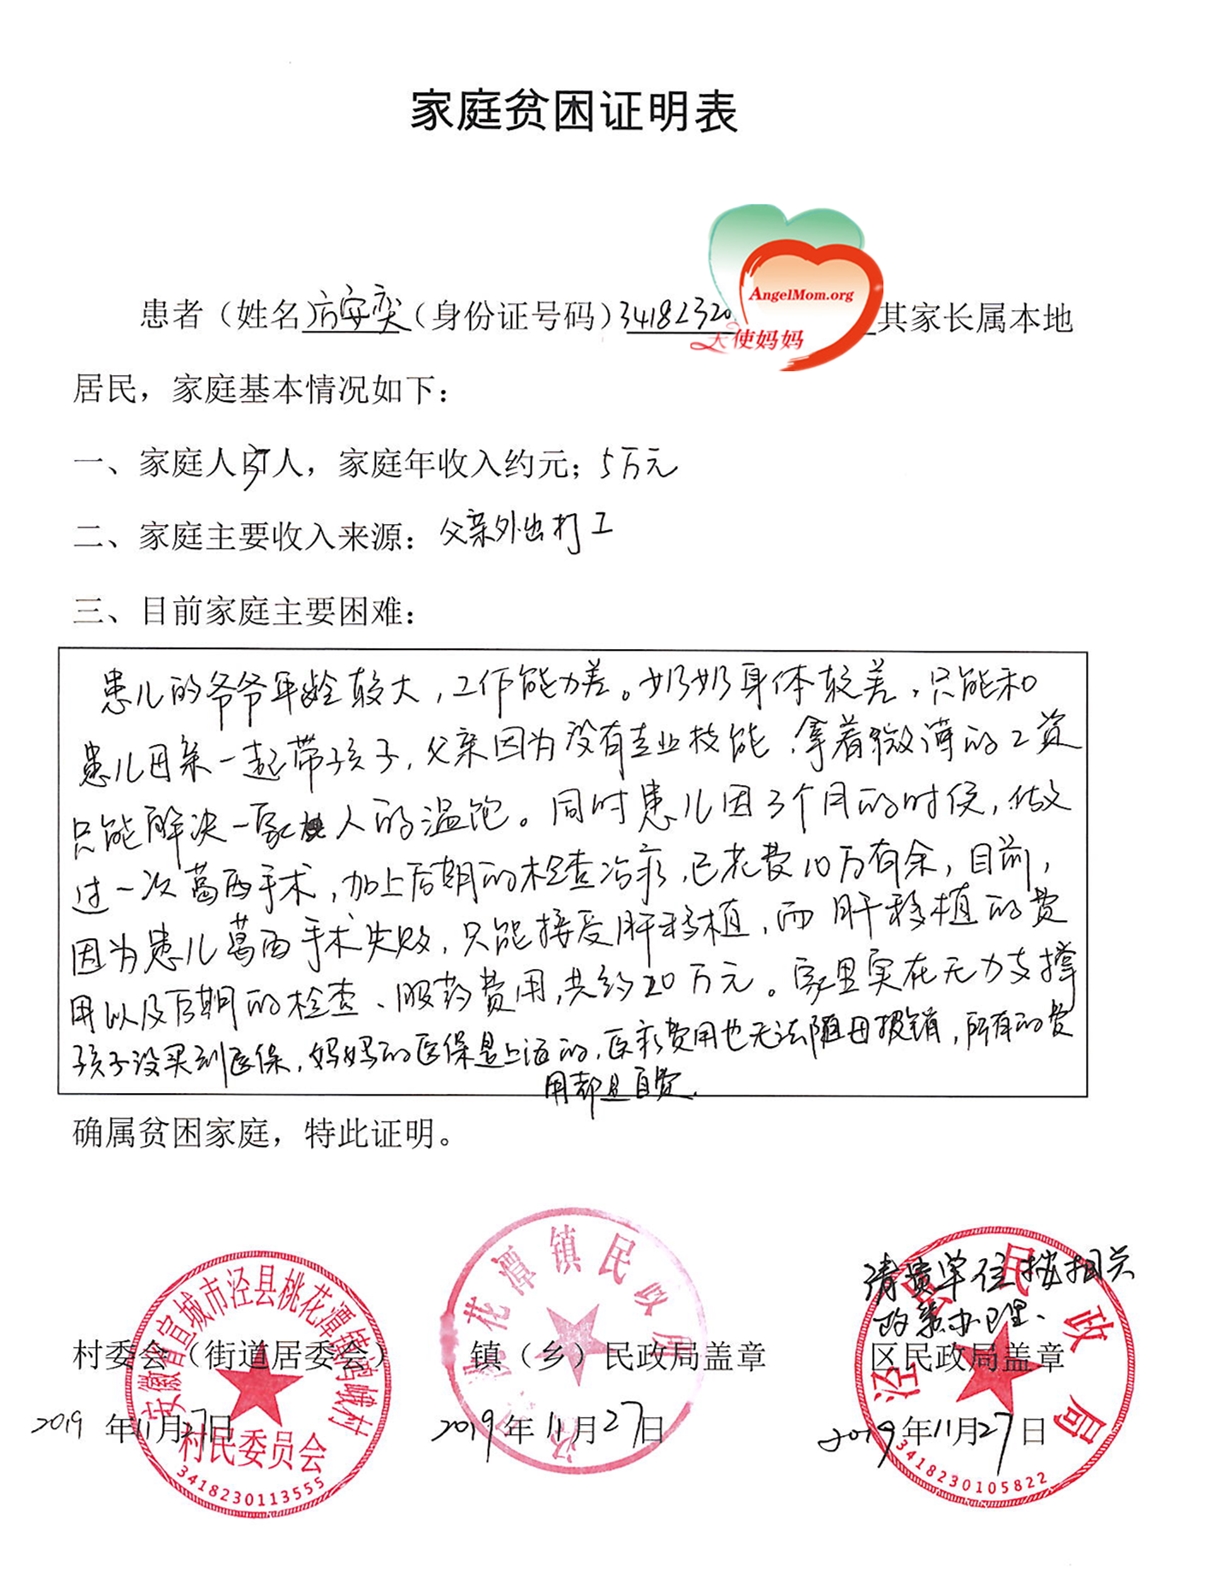 家庭贫困证明表
AngelMom.org
天使妈妈
患者(姓名 安奕(身份证号码)34182320 其家长属本地
居民，家庭基本情况如下：
一、家庭人 人，家庭年收入约元；5万元
二、家庭主要收入来源：父亲外出打工
三、目前家庭主要困难：
患儿的爷爷年龄较大，工作能力差。奶奶身体较差，只能和
患儿母亲一起带孩子，父亲因为没有专业技能，拿着微薄的工资
只能解决一家 人的温饱。同时患儿因3个月的时候，做
过一次葛西手术，加上后期的检查治疗，已花费10万有余，目前，
因为患儿葛西手术失败，只能接受肝移植，而肝移植的费
用以及后期的检查、服药费用，共约20万元。家里实在无力支撑
孩子没买到医保，妈妈的医保是上海的，医疗费用也无法随母报销，所有的费
用都是自费.
确属贫困家庭，特此证明。
请贵单位按相关
政策办理.
村委会（街道居委会） 镇（乡）民政局盖章 区民政局盖章
2019 年11月27日 2019年11月27日 2019年11月27日
安徽省宣城市泾县桃花潭镇 村
村民委员会
3418230113555
桃花潭镇民政
泾县民政局
3418230105822